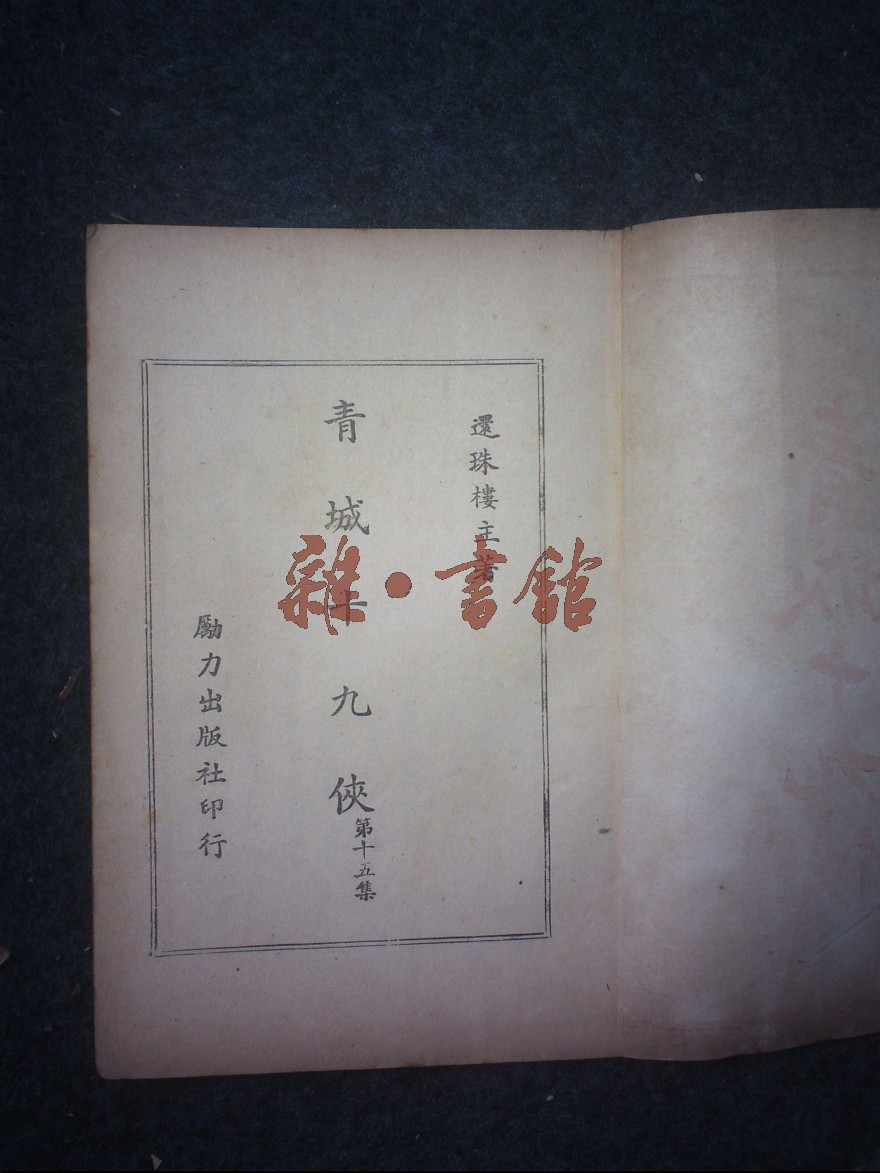 還珠樓主著
青城十九俠
第十五集
勵力出版社印行
雜·書館